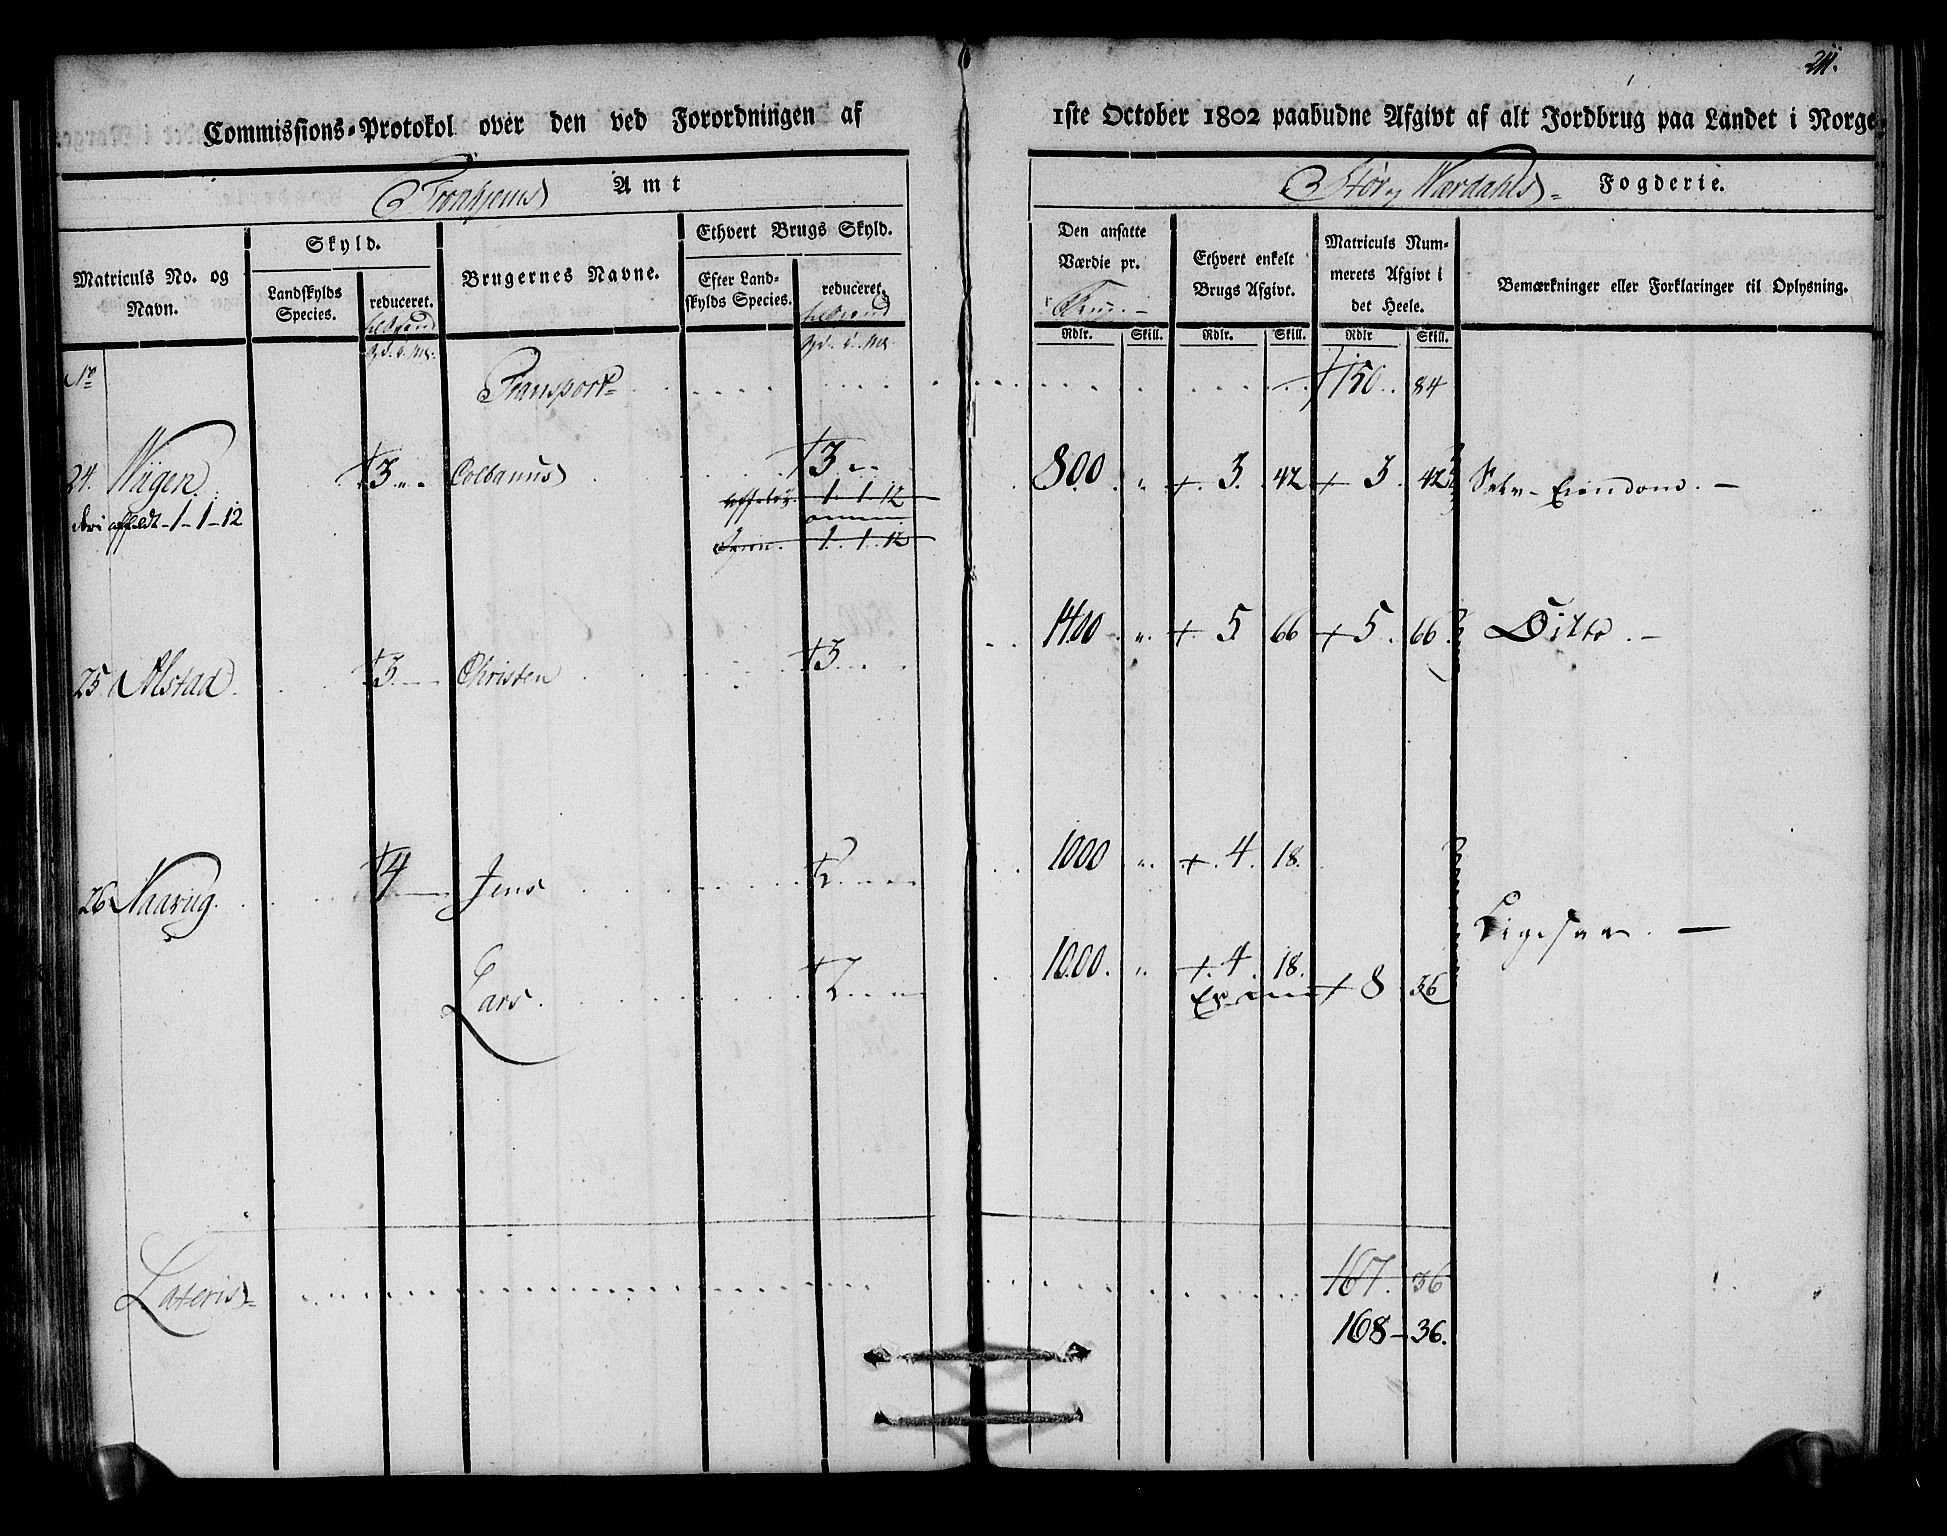 211.
Commissions-Protokol over den ved Forordningen af 1ste October 1802 paabudne Afgivt af alt Jordbrug paa Landet i Norge.
Tronhjems Amt
Stør og Wærdahls Fogderie.
Matriculs No. og Navn.
Skyld.
Landskylds Species.
reduceret.
Brugernes Navne.
Ethvert Brugs Skyld.
Efter Landskylds Species.
reduceret.
Den ansatte Værdie pr.
Ethvert enkelt Brugs Afgivt.
Matriculs Nummerets Afgivt i det Heele.
Bemærkninger eller Forklaringer til Oplysning.
Rdlr. Skill. Rdlr. Skill. Rdlr Skill.
No Transport 150. 84
24. Wiigen. 3 Colbanus 3 800 " 3. 42 3 42 Selv-Eiendom.
affeldt-1-1-12 1. 1. 12
1. 1. 12
25 Alstad 3 Christen 3 1400 " 5 66 5. 66 Ditto.
26 Naavug. 4 Jens 2 1000 " 4. 18. Ligesaa.
Lars. 2 1000. " 4. 18. 8 36
Lateris 167. 36
168-36.